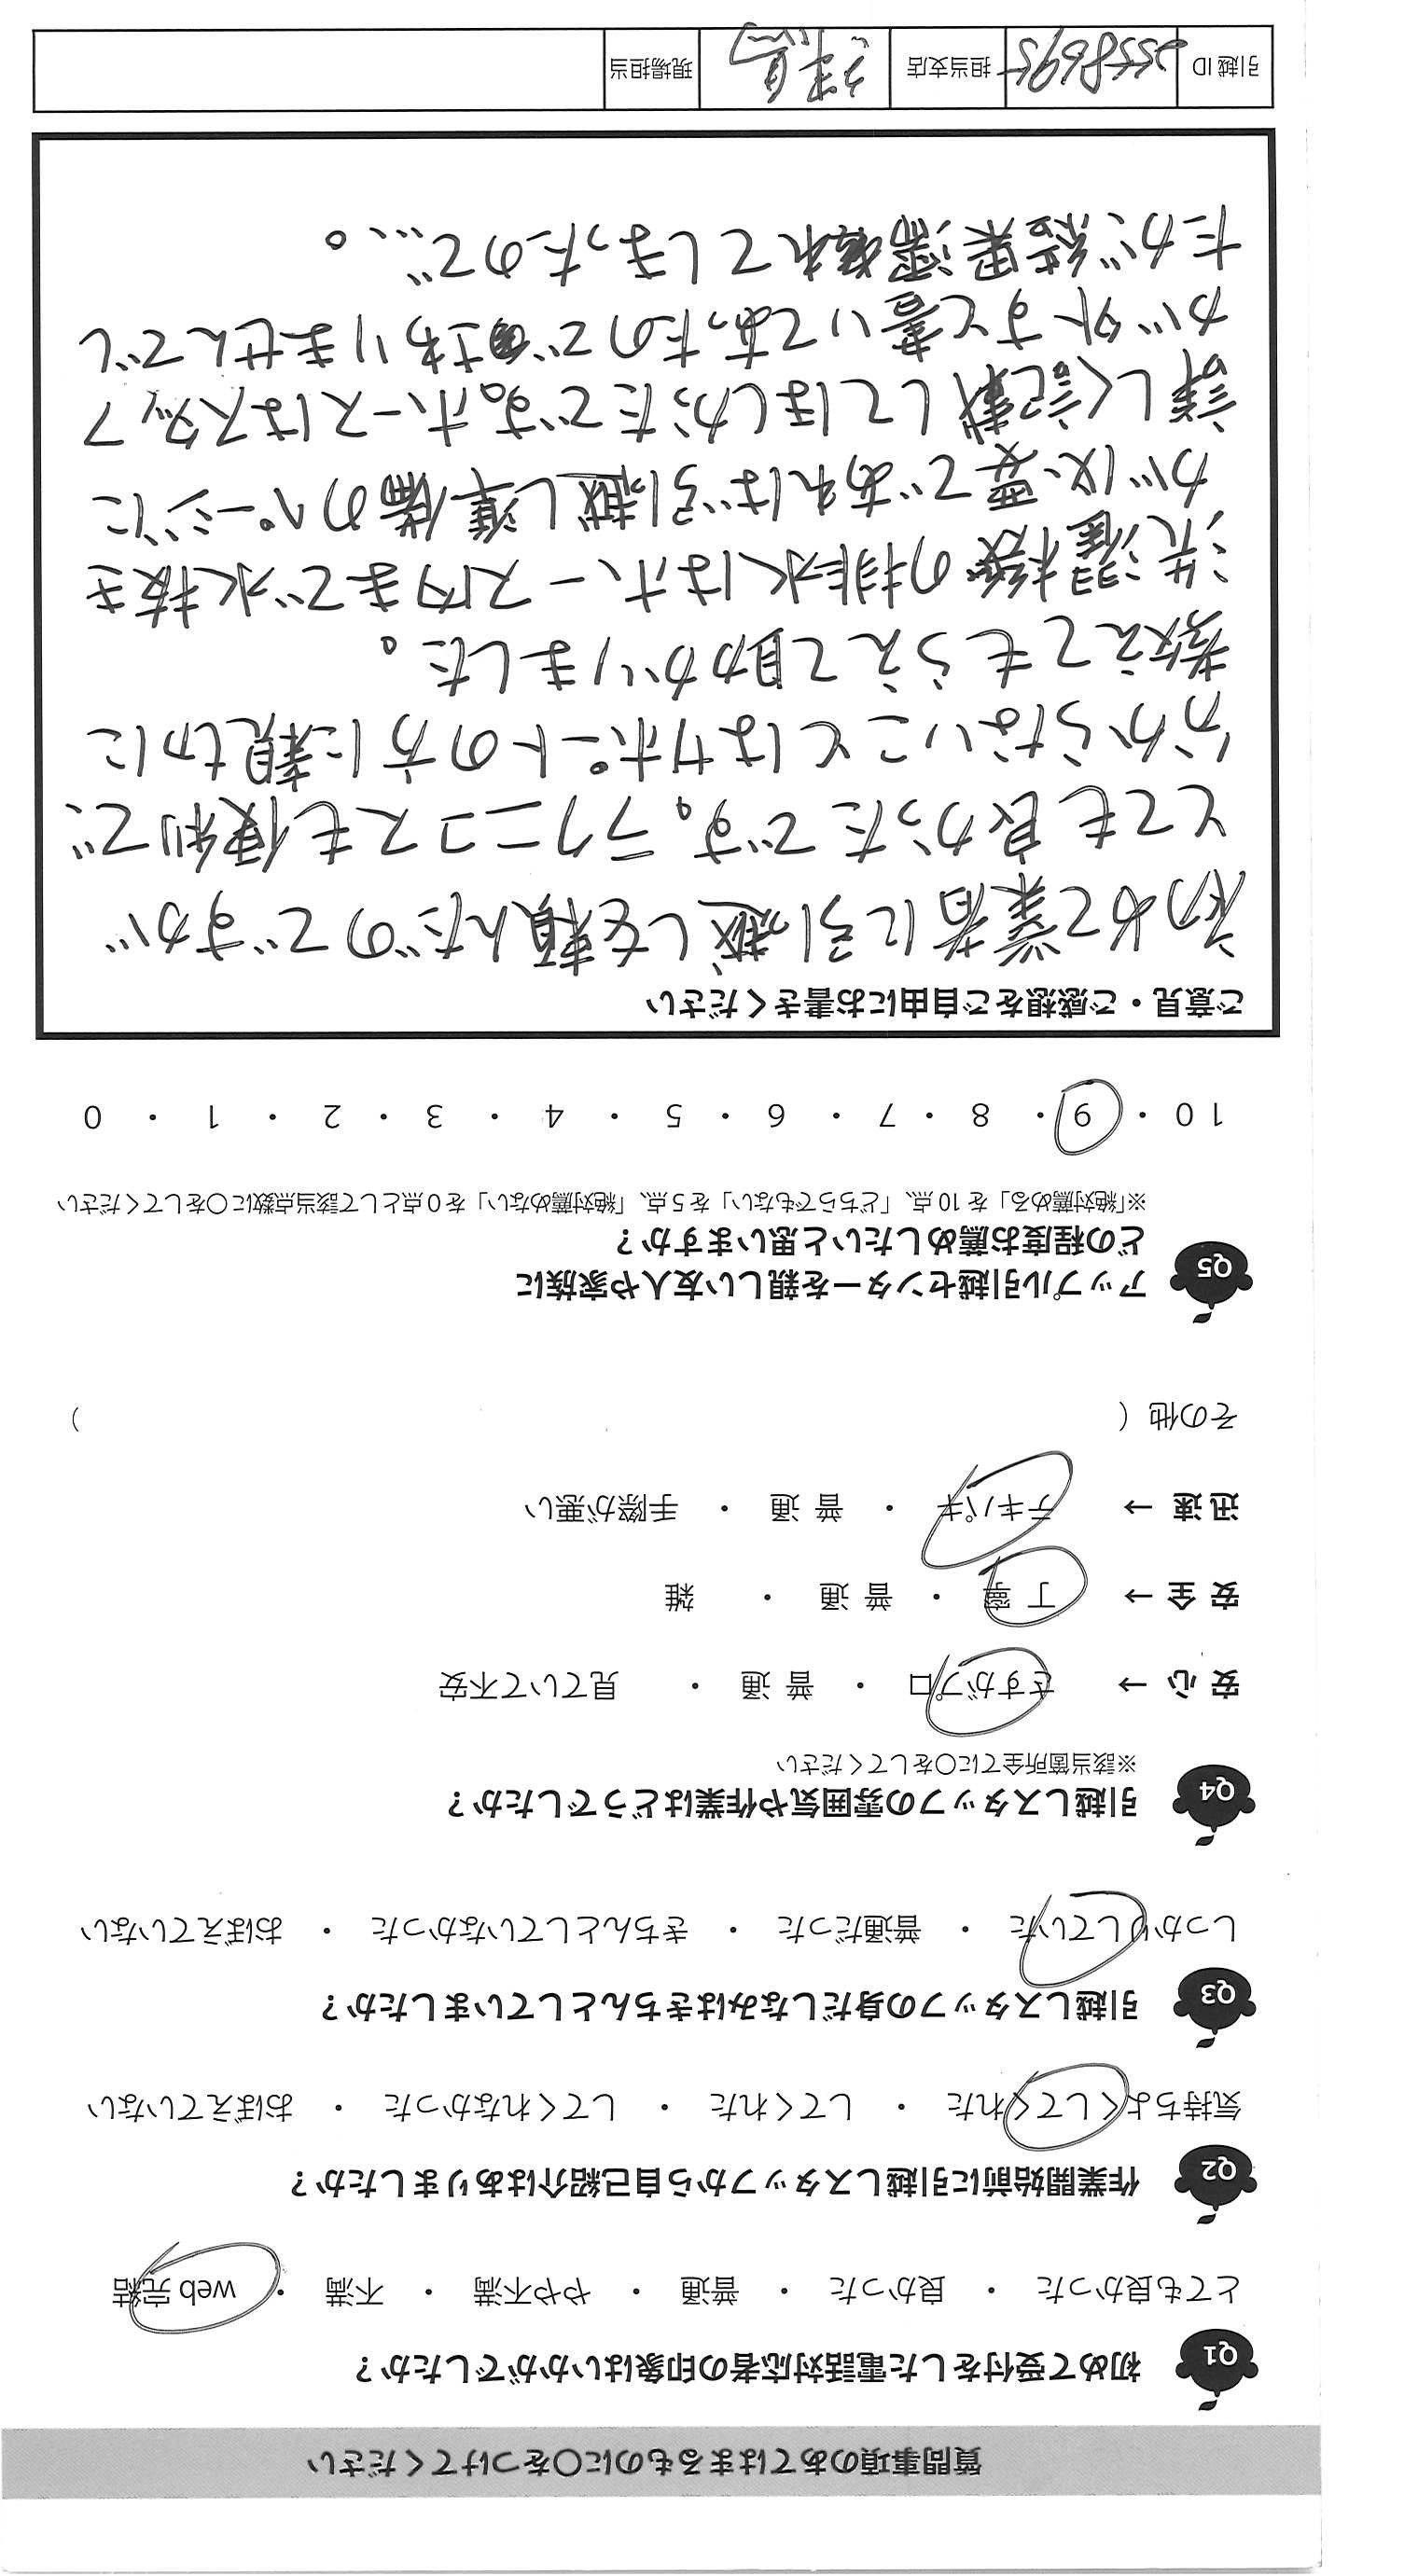 質問事項のあてはまるものに〇をつけてください
Q1 初めて受付をした電話対応者の印象はいかがでしたか？
とても良かった ・ 良かった ・ 普通 ・ やや不満 ・ 不満 ・ web 完結
Q2 作業開始前に引越しスタッフから自己紹介はありましたか？
気持ちよくしてくれた ・ してくれた ・ してくれなかった ・ おぼえていない
Q3 引越しスタッフの身だしなみはきちんとしていましたか？
しっかりしていた ・ 普通だった ・ きちんとしていなかった ・ おぼえていない
Q4 引越しスタッフの雰囲気や作業はどうでしたか？
※該当箇所全てに〇をしてください
安 心 → さすがプロ ・ 普 通 ・ 見ていて不安
安 全 → 丁 寧 ・ 普 通 ・ 雑
迅 速 → テキパキ ・ 普 通 ・ 手際が悪い
その他（ ）
Q5 アップル引越センターを親しい友人や家族に
どの程度お薦めしたいと思いますか？
※「絶対薦める」を 10 点、「どちらでもない」を 5 点、「絶対薦めない」を 0 点として該当点数に〇をしてください
10 ・ 9 ・ 8 ・ 7 ・ 6 ・ 5 ・ 4 ・ 3 ・ 2 ・ 1 ・ 0
ご意見・ご感想をご自由にお書きください
初めて業者に引越しを頼んだのですが
とても良かったです。ラクニコスも便利で、
分からないことはサポートの方に親切に
教えてもらえて助かりました。
洗濯機の排水はホース内まで水抜き
が必要であれば引越し準備のページに
詳しく記載してほしかったです。ホースはスタッフ
が外すと書いてあったのでさわりませんでし
たが結果濡れてしまったので…。
引越 ID 2558695 担当支店 現場担当